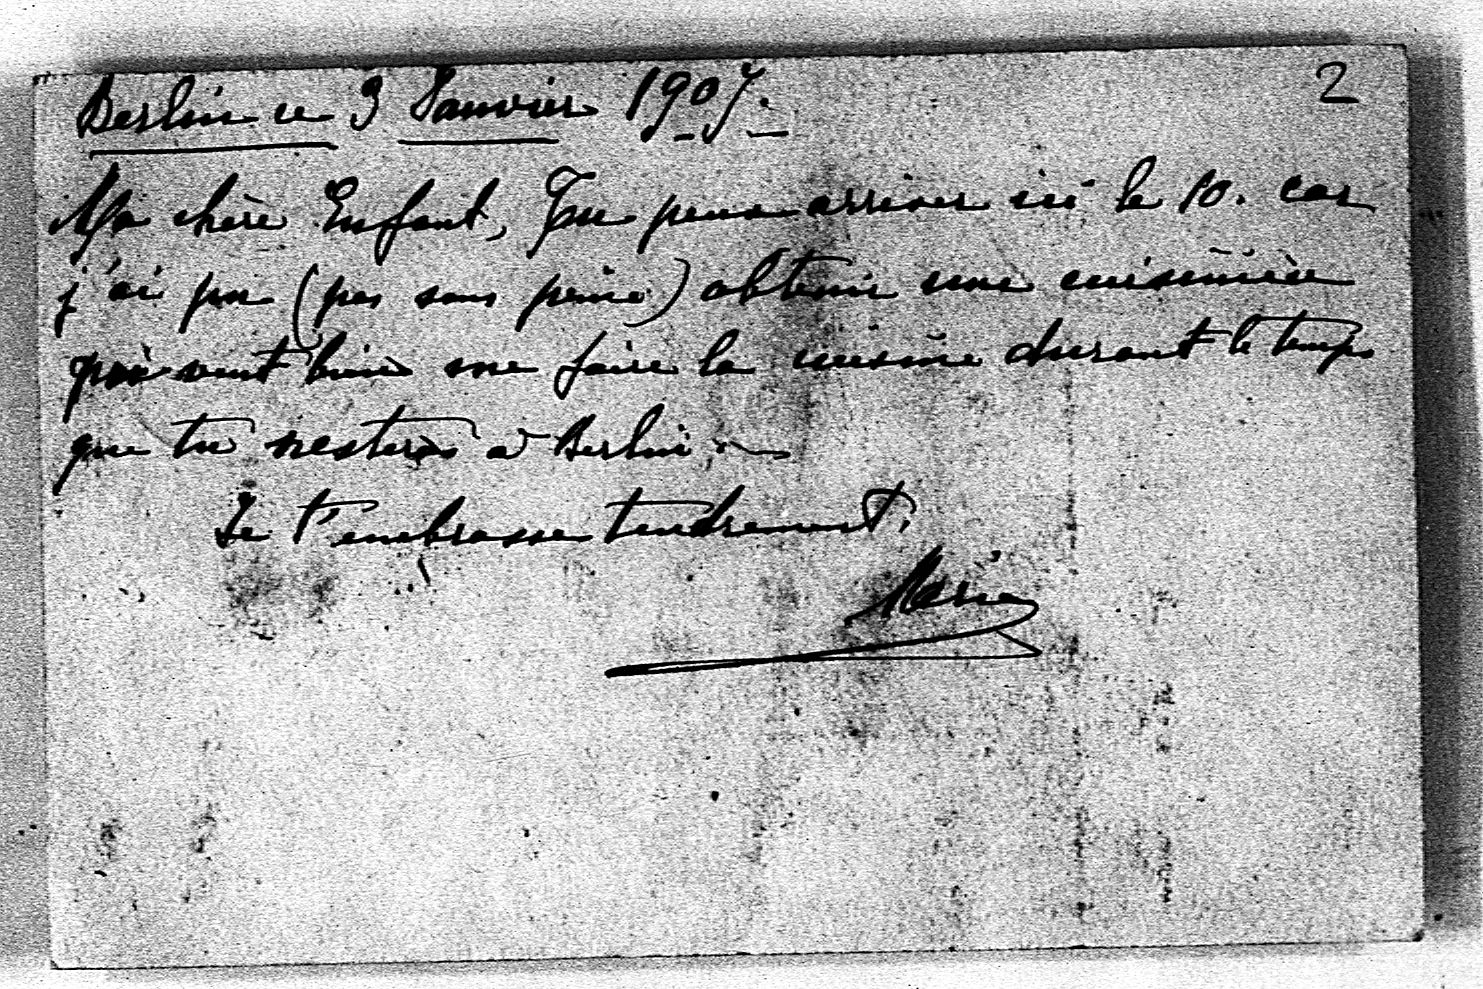 2
Berlin ce 3 Janvier 1907.
Ma chère Enfant, Tu peux arriver ici le 10. car
j'ai pu (pas sans peine) obtenir une cuisinière
qui veut bien me faire la cuisine durant le temps
que tu resteras à Berlin. —
Je t'embrasse tendrement.
Marie